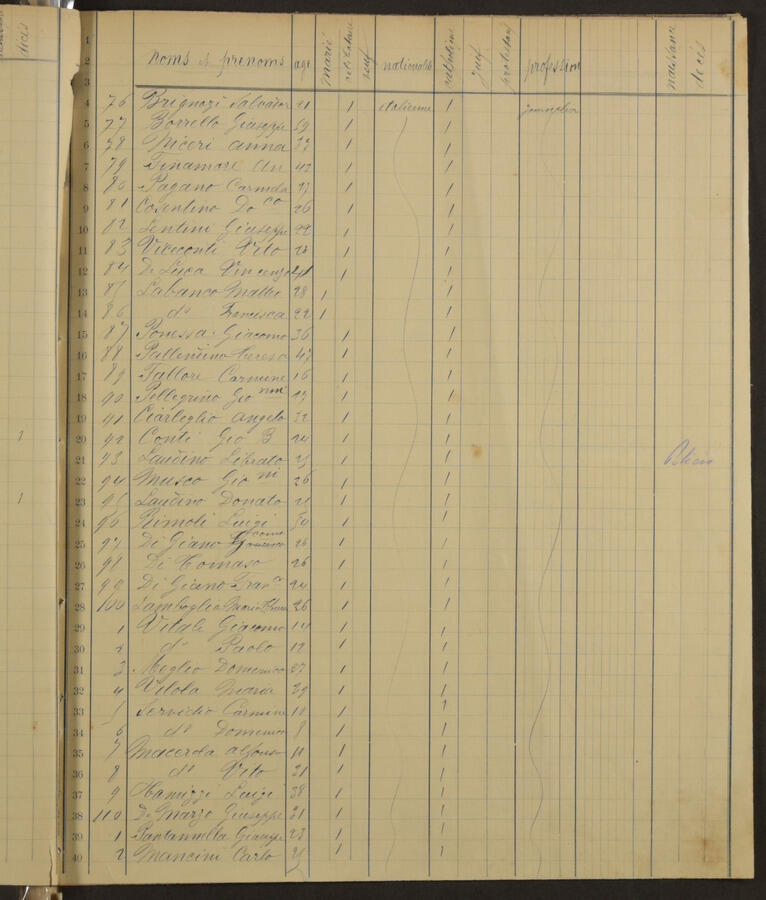 decis
1
1
1
2 noms et prenoms age marié celibataire veuf nationalité catholique juif protestan profession naissance decis
3
4 76 Brignozi Salvator 21 1 italienne 1 journalier
5 77 Borrello Giuseppe 59 1 1
6 78 Niceri anna 37 1 1
7 79 Finamore An 42 1 1
8 80 Pagano Carmela 27 1 1
9 81 Cosentino Do co 26 1 1
10 82 Lentini Giuseppe 22 1 1
11 83 Viceconti Vito 28 1 1
12 84 De Luca Vincenzo 41 1 1
13 85 Labanca Matteo 28 1 1
14 86 do Francesca 22 1 1
15 87 Ponessa Giacomo 36 1 1
16 88 Pallentino Teresa 47 1 1
17 89 Tallore Carmine 16 1 1
18 90 Pellegrino Gio nni 27 1 1
19 91 Ciarleglio Angelo 32 1 1
20 92 Conti Gio B 24 1 1
21 93 Laurino Liberato 25 1 1
22 94 Musco Gio ni 26 1 1
23 95 Laurino Donato 21 1 1
24 96 Rimoli Luigi 50 1 1
25 97 Di Giano Giacomo 26 1 1
26 98 Di Tomaso 26 1 1
27 99 Di Giano Fran co 24 1 1
28 100 Lamboglia Maria 26 1 1
29 1 Vitale Giacomo 14 1 1
30 2 do Paolo 12 1 1
31 3 Meglio Domenico 27 1 1
32 4 Vitola Maria 29 1 1
33 5 Servidio Carmine 10 1 1
34 6 do Domenico 8 1 1
35 7 Macerda Alfonso 11 1 1
36 8 do Vito 21 1 1
37 9 Luigi 38 1 1
38 110 De Marzo Giuseppe 21 1 1
39 1 Giuseppe 23 1 1
40 2 Mancini Carlo 25 1 1